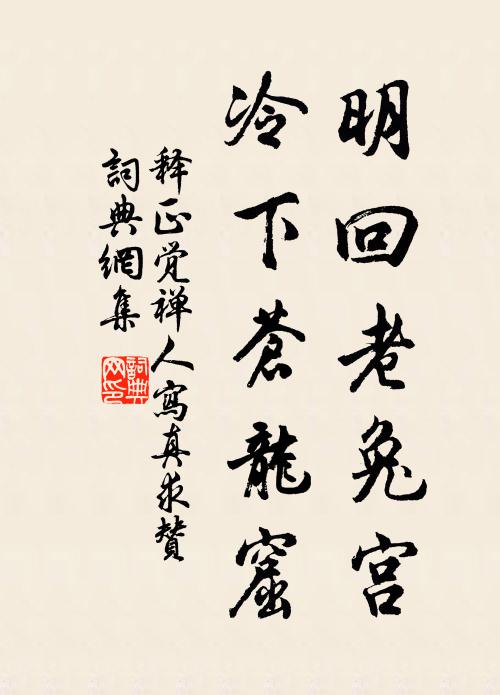 明回老兔宫
冷下蒼龍窟
释正觉禅人寫真求贊
詞典網集
詞典网印